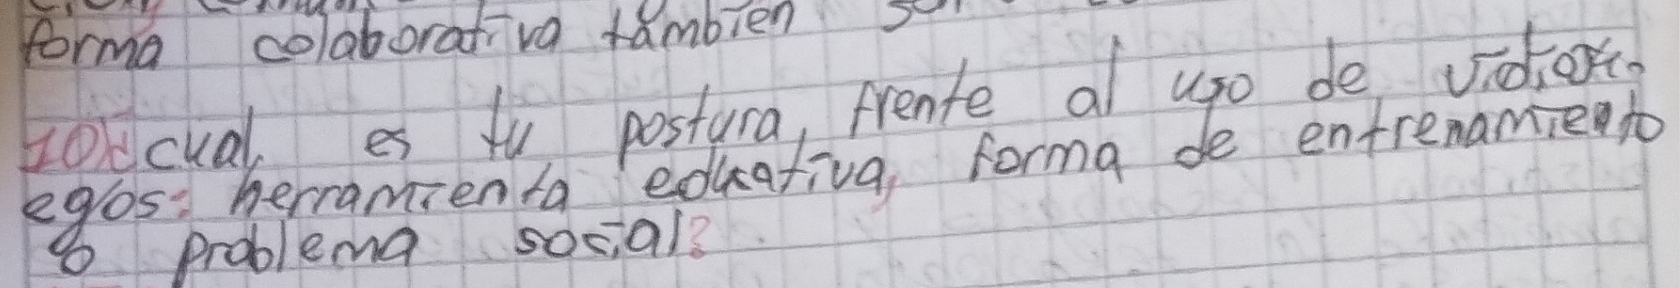 forma colaborativa tambien
10¿cual es tu postura, frente al uso de vidio
egos: herramienta educativa, forma de entrenamiento
o problema social?